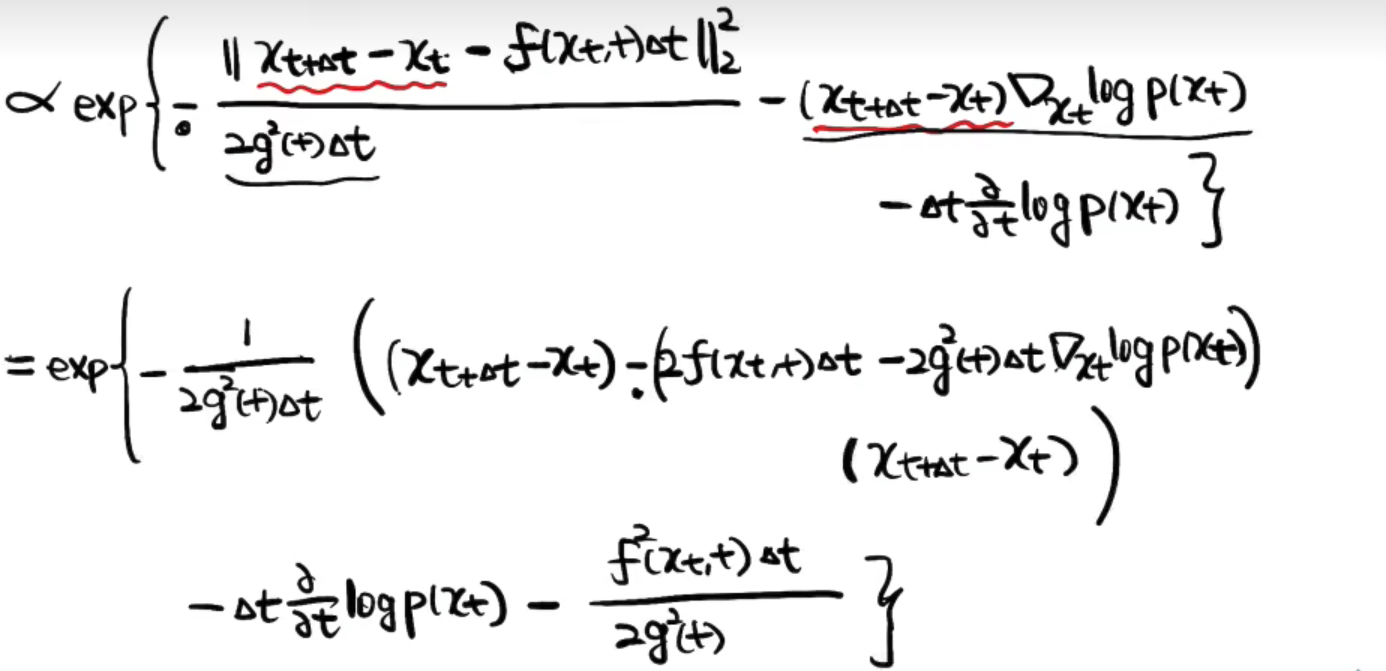 ∝ exp{ - ‖x_{t+Δt} - x_t - f(x_t,t)Δt‖₂² / 2g²(t)Δt - (x_{t+Δt} - x_t)∇_{x_t} log p(x_t)
- Δt ∂/∂t log p(x_t) }
= exp{ - 1 / 2g²(t)Δt ( (x_{t+Δt} - x_t) - (2f(x_t,t)Δt - 2g²(t)Δt ∇_{x_t} log p(x_t))
(x_{t+Δt} - x_t) )
- Δt ∂/∂t log p(x_t) - f²(x_t,t)Δt / 2g²(t) }